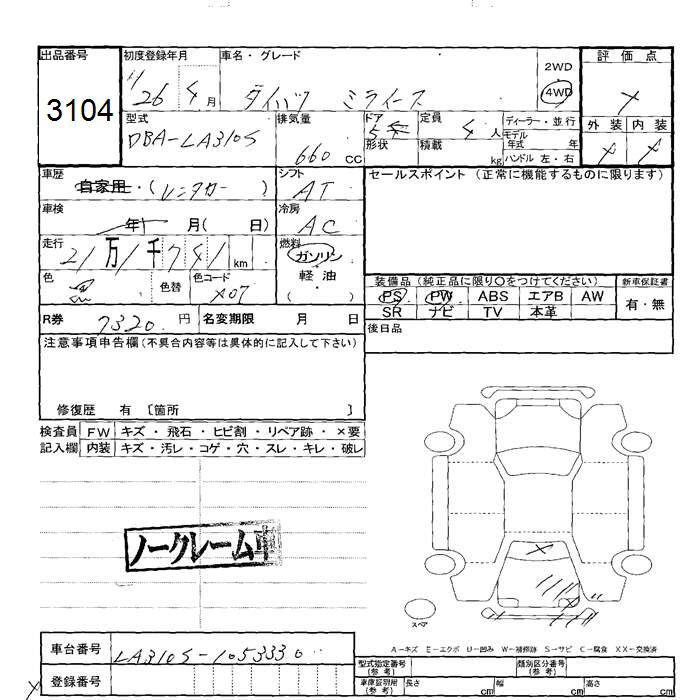 出品番号 初度登録年月 車名・グレード 2WD 評価点
3104 26 4月 ダイハツ ミライース 4WD ×
型式 排気量 ドア 定員 ディーラー・並行 外装 内装
DBA-LA310S 660 CC 5 4人 モデル年式 年 × ×
形状 積載 kg ハンドル 左・右
車歴 自家用・(レンタカー) シフト AT セールスポイント (正常に機能するものに限ります)
車検 年 月( 日) 冷房 AC
走行 21万1千741km 燃料 ガソリン・軽油
色 黒 色替 色コード X07 ( )
装備品 (純正品に限り○をつけてください) 新車保証書
PS PW ABS エアB AW 有・無
SR ナビ TV 本革
R券 7320円 名変期限 月 日 後日品
注意事項申告欄(不具合内容等は具体的に記入して下さい)
修復歴 有 〔箇所 〕
検査員 FW キズ・飛石・ヒビ割・リペア跡・×要
記入欄 内装 キズ・汚レ・コゲ・穴・スレ・キレ・破レ
ノークレーム車
スペア
A-キズ E-エクボ U-凹み W-補修跡 S-サビ C-腐食 XX-交換済
車台番号 LA310S-1053330
型式指定番号(参考) 類別区分番号(参考)
登録番号 車庫証明用(参考) 長さ cm 幅 cm 高さ cm